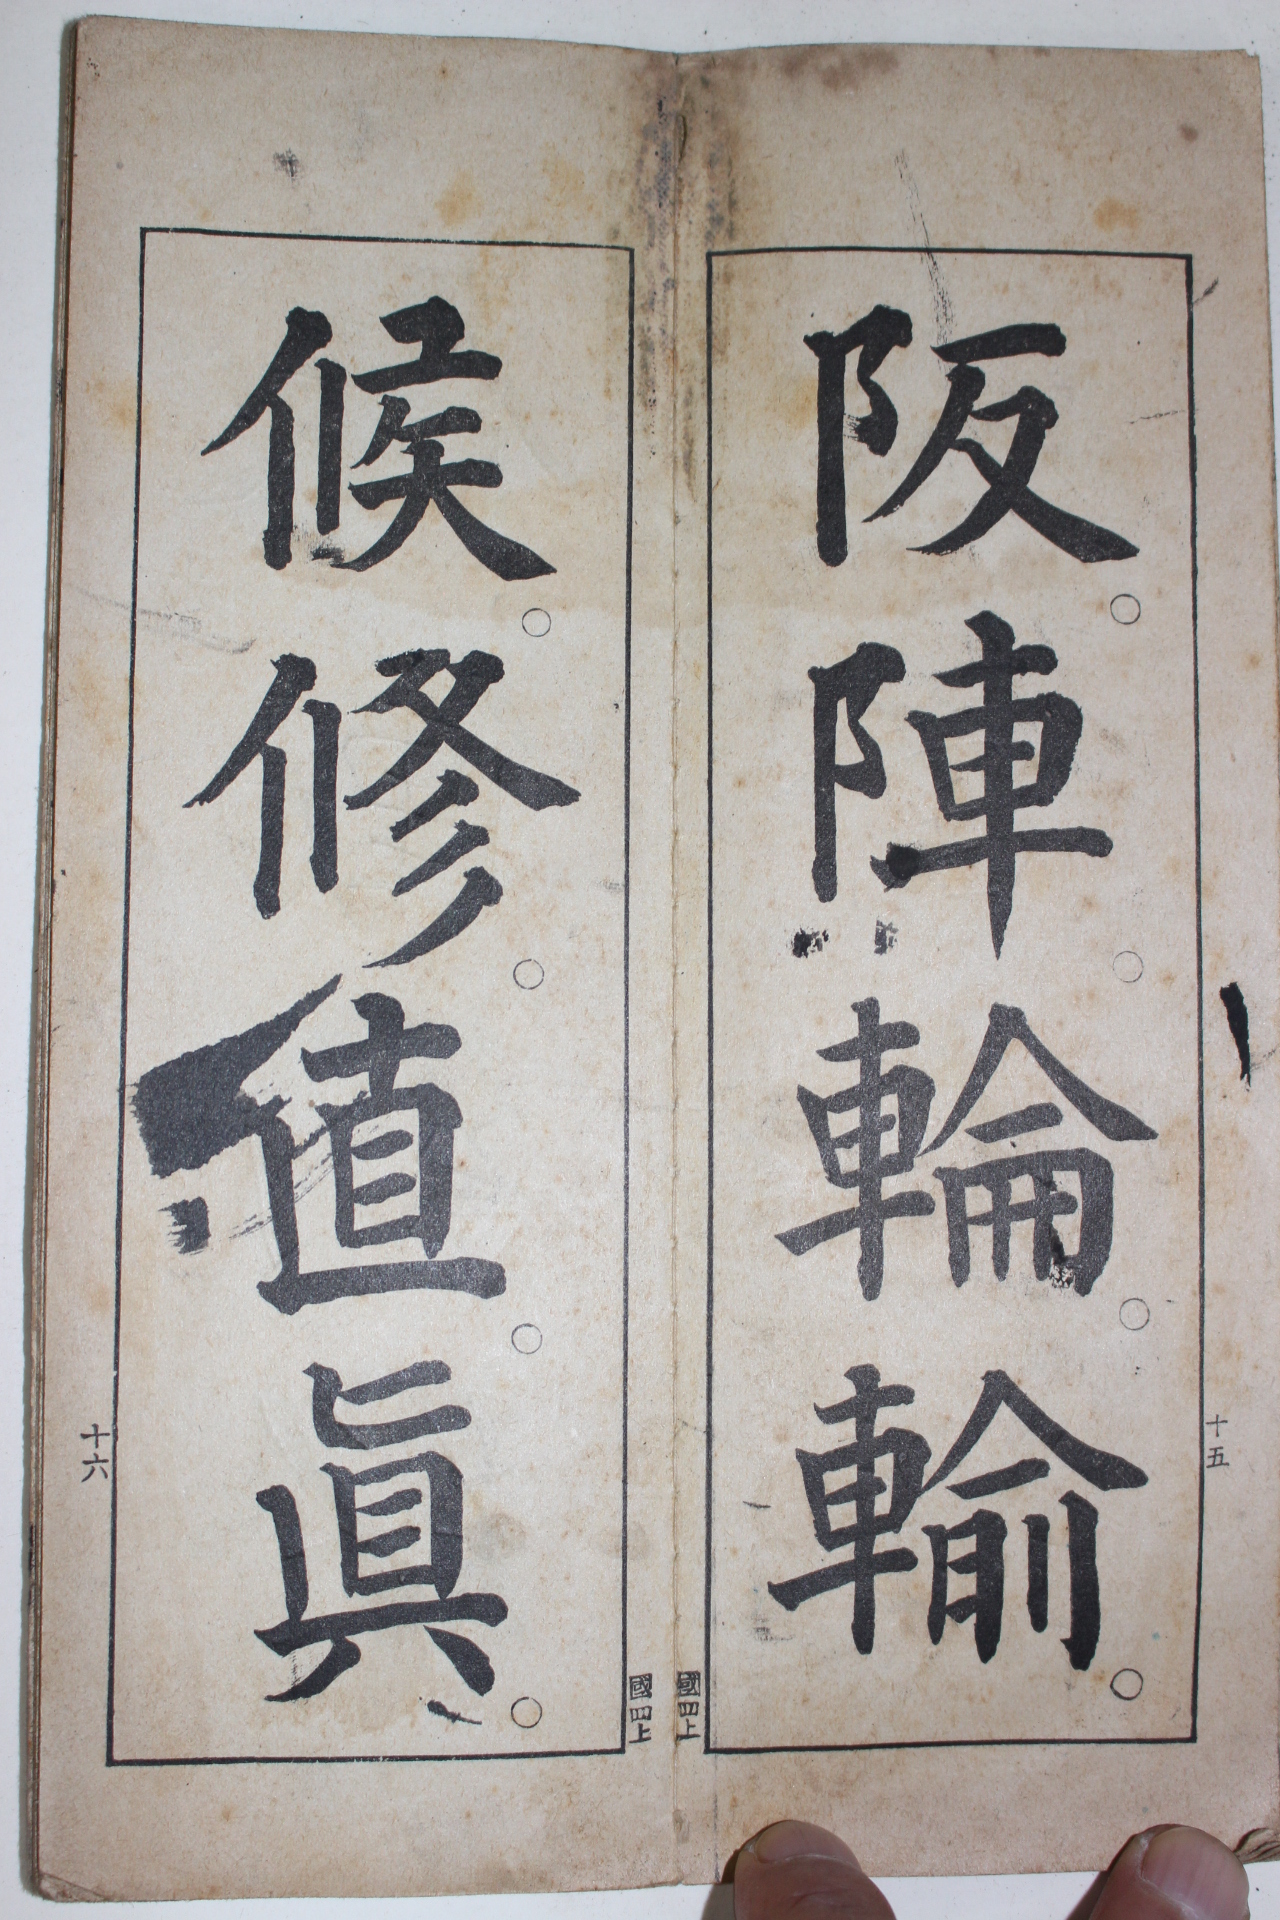 阪○陣○輪○輸○
十五
國四上
候○修○値○眞○
十六
國四上